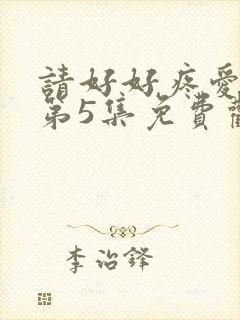 請好好疼愛
第5集免費
李治鋒